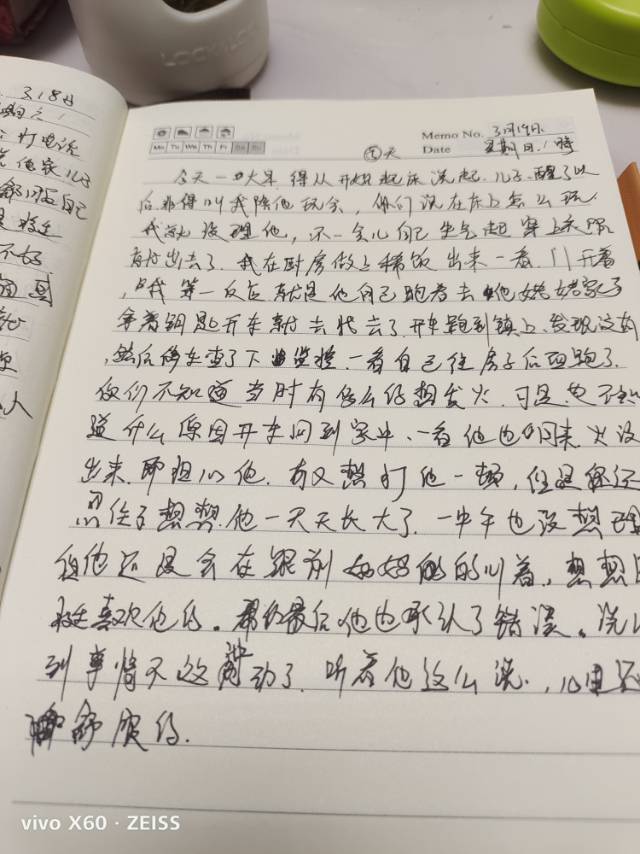 LOCK&LOCK
3.18日
打电话
Mo Tu We Th Fr Sa Su
Memo No. 3月19日.
Date 星期日.1時
天
今天一大早 得从开始起床洗起.儿子.醒了以
后非得叫我陪他玩会,你们说在床上怎么玩.
我就没理他,不一会儿自己生气起穿上衣服
出去了.我在厨房做上稀饭出来一看.门开着
,我第一反应就是他自己跑着去他姥姥家了
拿着钥匙开车就去找去了.开车跑到镇上.发现没有
,然后停车查了下监控.一看自己往房子后面跑了.
你们不知道当时有多么的想发火.可是也不知
道什么原因开车回到家中.一看他也回来 火没
出来.即担心他.有又想打他一顿,但是我还
忍住了想想.他一天天长大了.一中午也没想理
但他还是会在跟前妈妈的叫着.想想
挺喜欢他的.最后他也承认了错误。说
到事情不这冲动了.听着他这么说.,心里还
舒服的.
vivo X60 · ZEISS